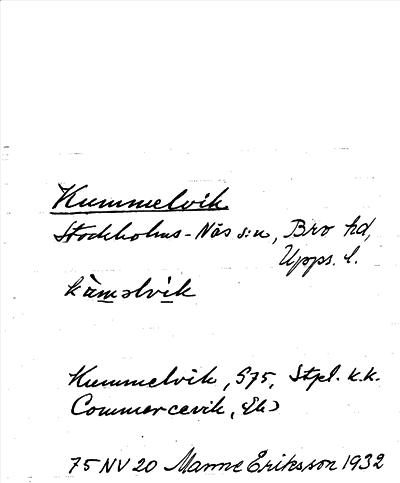 Kummelvik
Stockholms-Näs s:n, Bro hd,
Upps. l.
kàməlvik
Kummelvik, S75, Stpl. k.k.
Commercevik, Ek)
75 NV 20 Manne Eriksson 1932